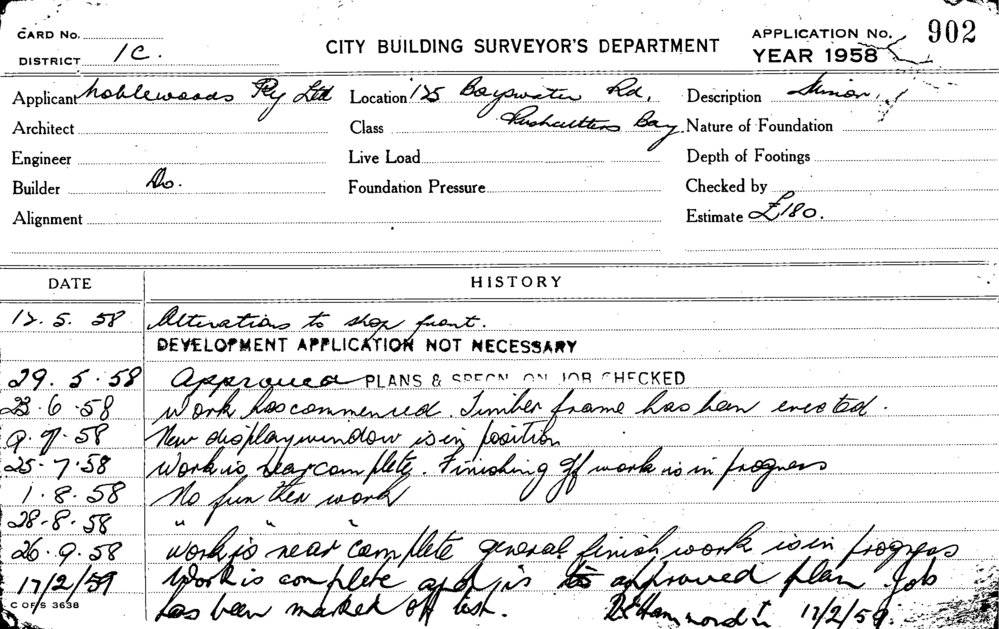 CARD No.
DISTRICT 1C.
CITY BUILDING SURVEYOR'S DEPARTMENT
APPLICATION No. 902
YEAR 1958
Applicant Noblewoods Pty Ltd Location 125 Bayswater Rd, Description Minor
Architect Class Rushcutters Bay. Nature of Foundation
Engineer Live Load Depth of Footings
Builder Do. Foundation Pressure Checked by
Alignment Estimate £180.
DATE HISTORY
12. 5. 58 Alterations to shop front.
DEVELOPMENT APPLICATION NOT NECESSARY
29. 5. 58 Approved PLANS & SPECN ON JOB CHECKED
23. 6. 58 Work has commenced. Timber frame has been erected.
9. 7. 58 New display window is in position
25. 7. 58 Work is near complete. Finishing off work is in progress
1. 8. 58 No further work
28. 8. 58 " " "
26. 9. 58 Work is near complete general finish work is in progress
17/2/59 Work is complete and is to approved plan job
C OF S 3638
has been marked off 17/2/59.